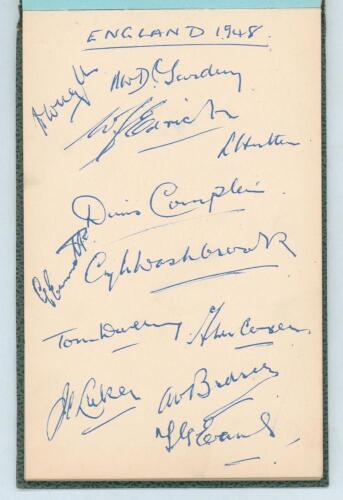 ENGLAND 1948.
D Wright
N W D Yardley
W J Edrich
L Hutton
Denis Compton
G Emmett
Cyril Washbrook
Tom Dewery
Alec Coxon
J C Laker
A V Bedser
T G Evans